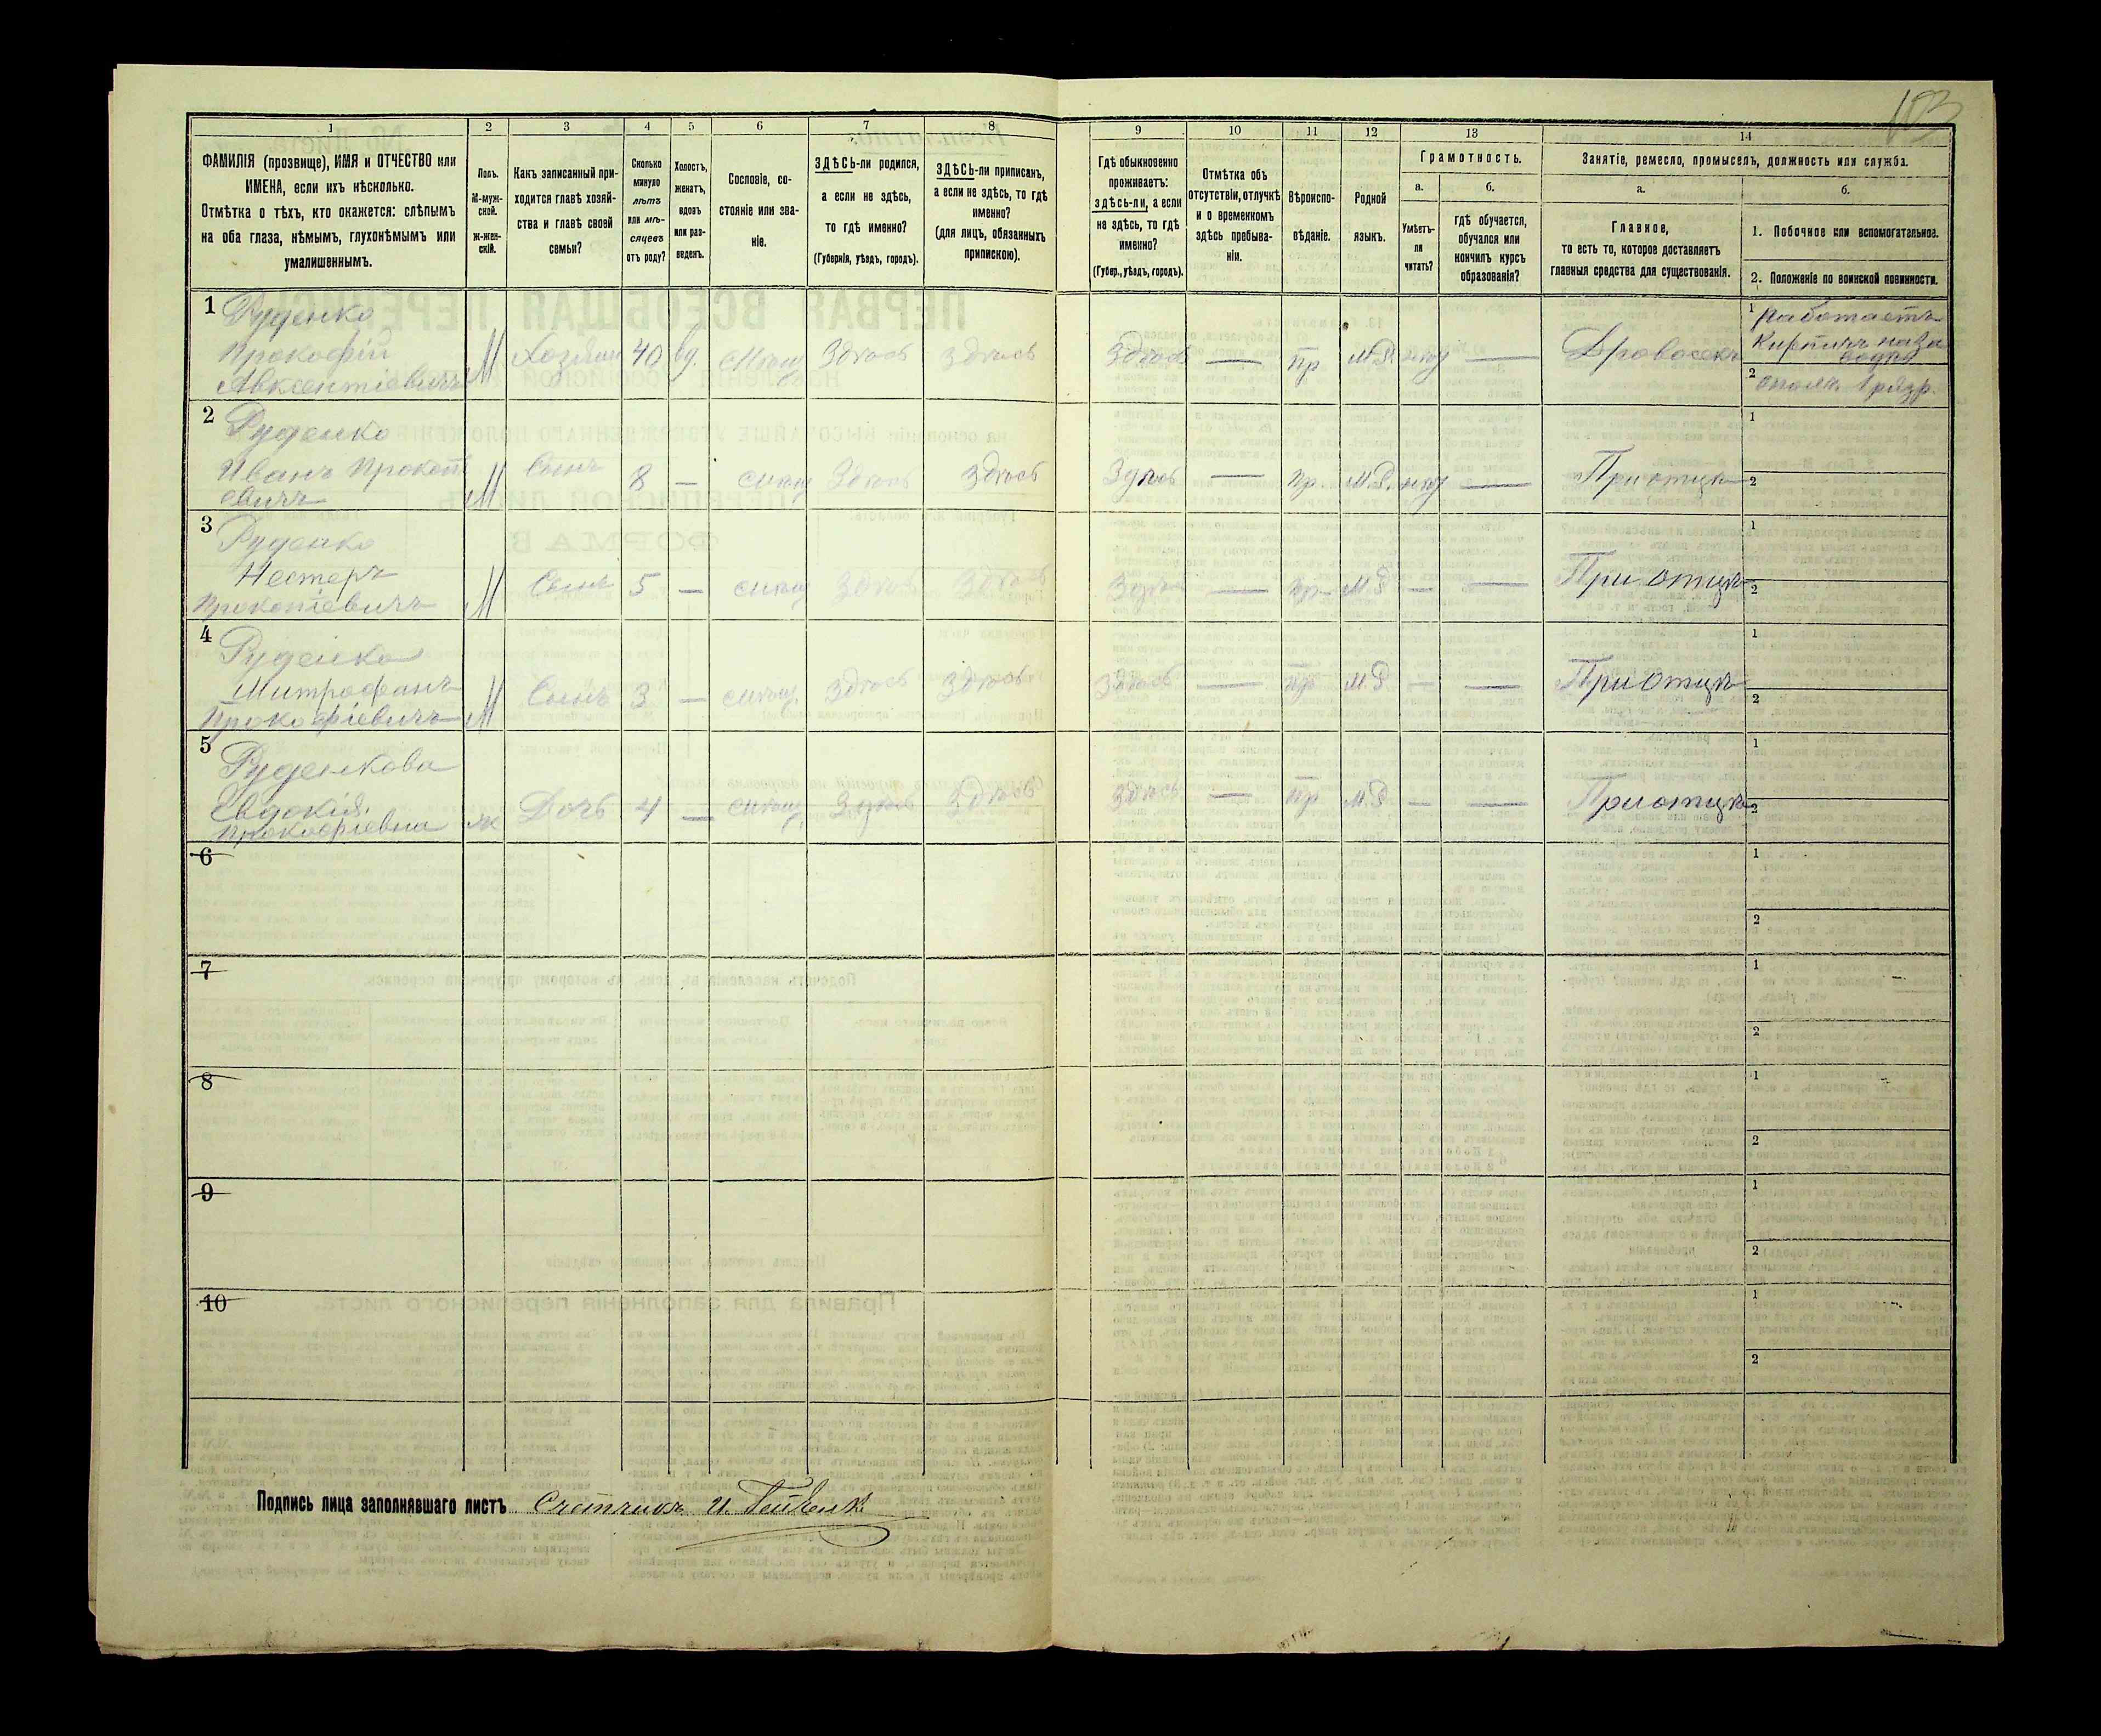 103
1
ФАМИЛІЯ (прозвище), ИМЯ и ОТЧЕСТВО или
ИМЕНА, если ихъ нѣсколько.
Отмѣтка о тѣхъ, кто окажется: слѣпымъ
на оба глаза, нѣмымъ, глухонѣмымъ или
умалишеннымъ.
2
Полъ.
М-муж-
ской.
ж-жен-
скій.
3
Какъ записанный при-
ходится главѣ хозяй-
ства и главѣ своей
семьи?
4
Сколько
минуло
лѣтъ
или мѣ-
сяцевъ
отъ роду?
5
Холостъ,
женатъ,
вдовъ
или раз-
веденъ.
6
Сословіе, со-
стояніе или зва-
ніе.
7
ЗДѢСЬ-ли родился,
а если не здѣсь,
то гдѣ именно?
(Губернія, уѣздъ, городъ).
8
ЗДѢСЬ-ли приписанъ,
а если не здѣсь, то гдѣ
именно?
(для лицъ, обязанныхъ
припискою).
9
Гдѣ обыкновенно
проживаетъ:
здѣсь-ли, а если
не здѣсь, то гдѣ
именно?
(Губер., уѣздъ, городъ).
10
Отмѣтка объ
отсутствіи, отлучкѣ
и о временномъ
здѣсь пребыва-
ніи.
11
Вѣроиспо-
вѣданіе.
12
Родной
языкъ.
13
Грамотность.
а.
Умѣетъ-
ли
читать?
б.
гдѣ обучается,
обучался или
кончилъ курсъ
образованія?
14
Занятіе, ремесло, промыселъ, должность или служба.
а.
Главное,
то есть то, которое доставляетъ
главныя средства для существованія.
б.
1. Побочное или вспомогательное.
2. Положеніе по воинской повинности.
1
Руденко
Прокофій
Авксентіевичъ
М
Хозяин
40
вд.
мѣщ
Здѣсь
Здѣсь
Здѣсь
—
пр
М.Р.
нѣт
—
Дровосекъ
1 Работаетъ
Кирпичъ на за
водѣ
2 ополч. 1 разр.
2
Руденко
Иванъ Прокоп
евичъ
М
Сынъ
8
—
мѣщ
Здѣсь
Здѣсь
Здѣсь
—
пр.
М.Р.
нѣт
—
При отцѣ
1
2
3
Руденко
Нестеръ
Прокопіевичъ
М
Сынъ
5
—
мѣщ
Здѣсь
Здѣсь
Здѣсь
—
пр
М.Р
—
—
При отцѣ
1
2
4
Руденко
Митрофанъ
Прокофіевичъ
М
Сынъ
3
—
мѣщ.
Здѣсь
Здѣсь
Здѣсь
—
пр
М.Р.
—
—
При отцѣ
1
2
5
Руденкова
Евдокія
Прокофіевна
ж
Дочь
4
—
мѣщ.
Здѣсь
Здѣсь
Здѣсь
—
пр
М.Р
—
—
При отцѣ
1
2
6
1
2
7
1
2
8
1
2
9
1
2
10
1
2
Подпись лица заполнявшаго листъ Счетчикъ И.